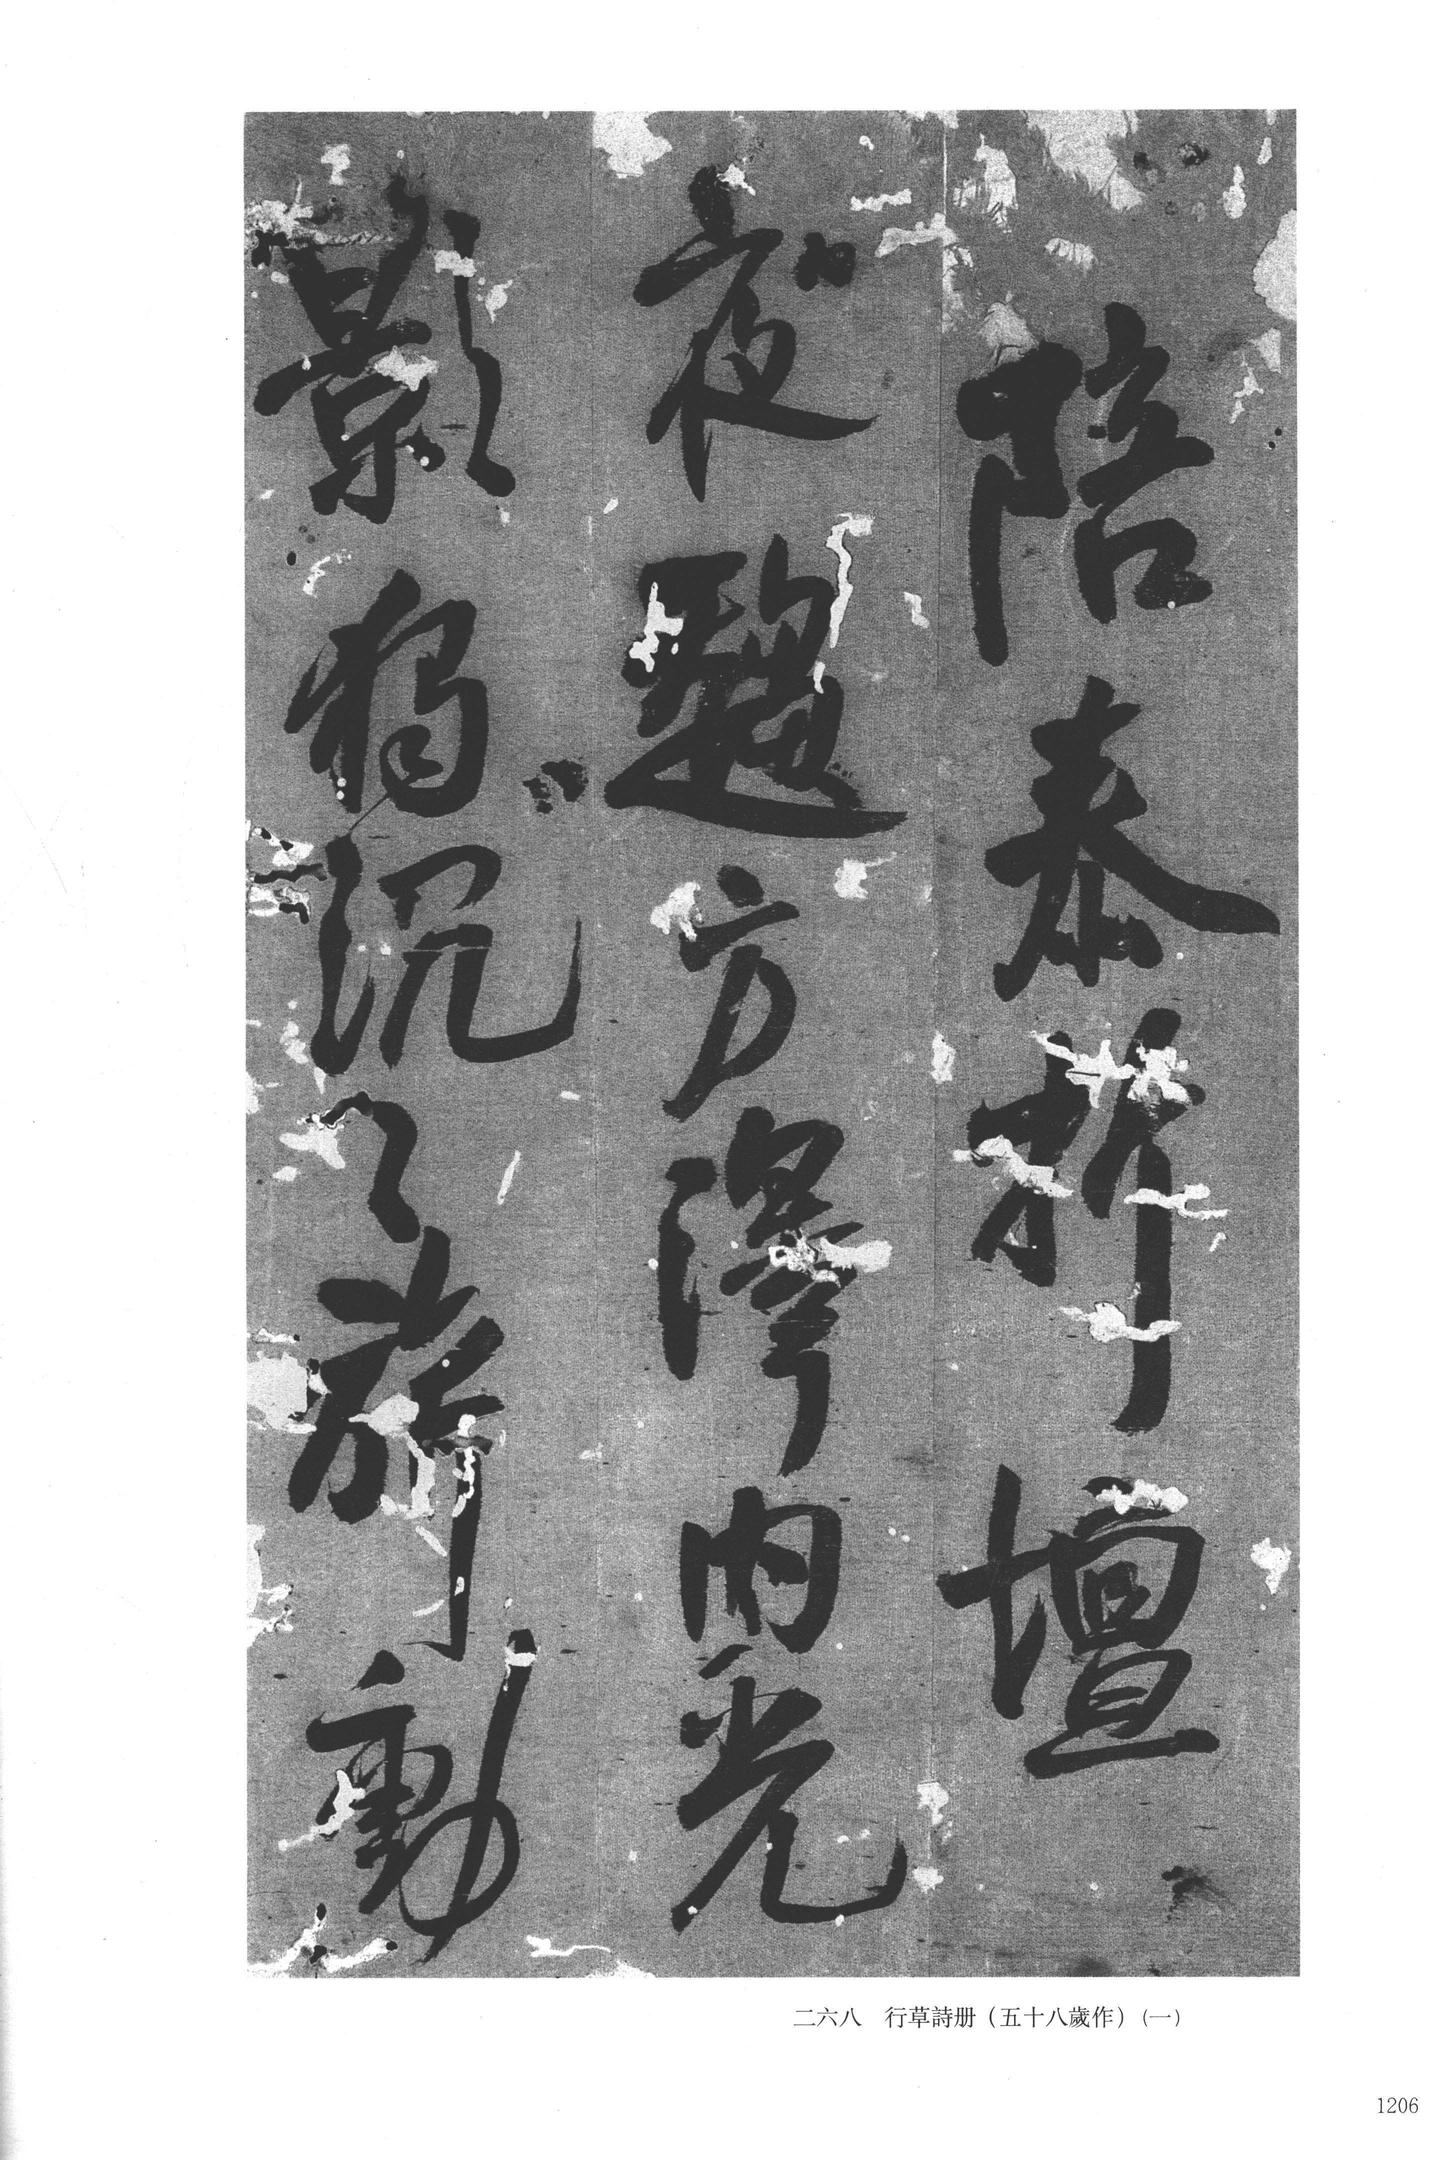 陪泰折壇
夜方澤内光
影獨沉々旂動
二六八　行草詩册（五十八歲作）（一）
1206